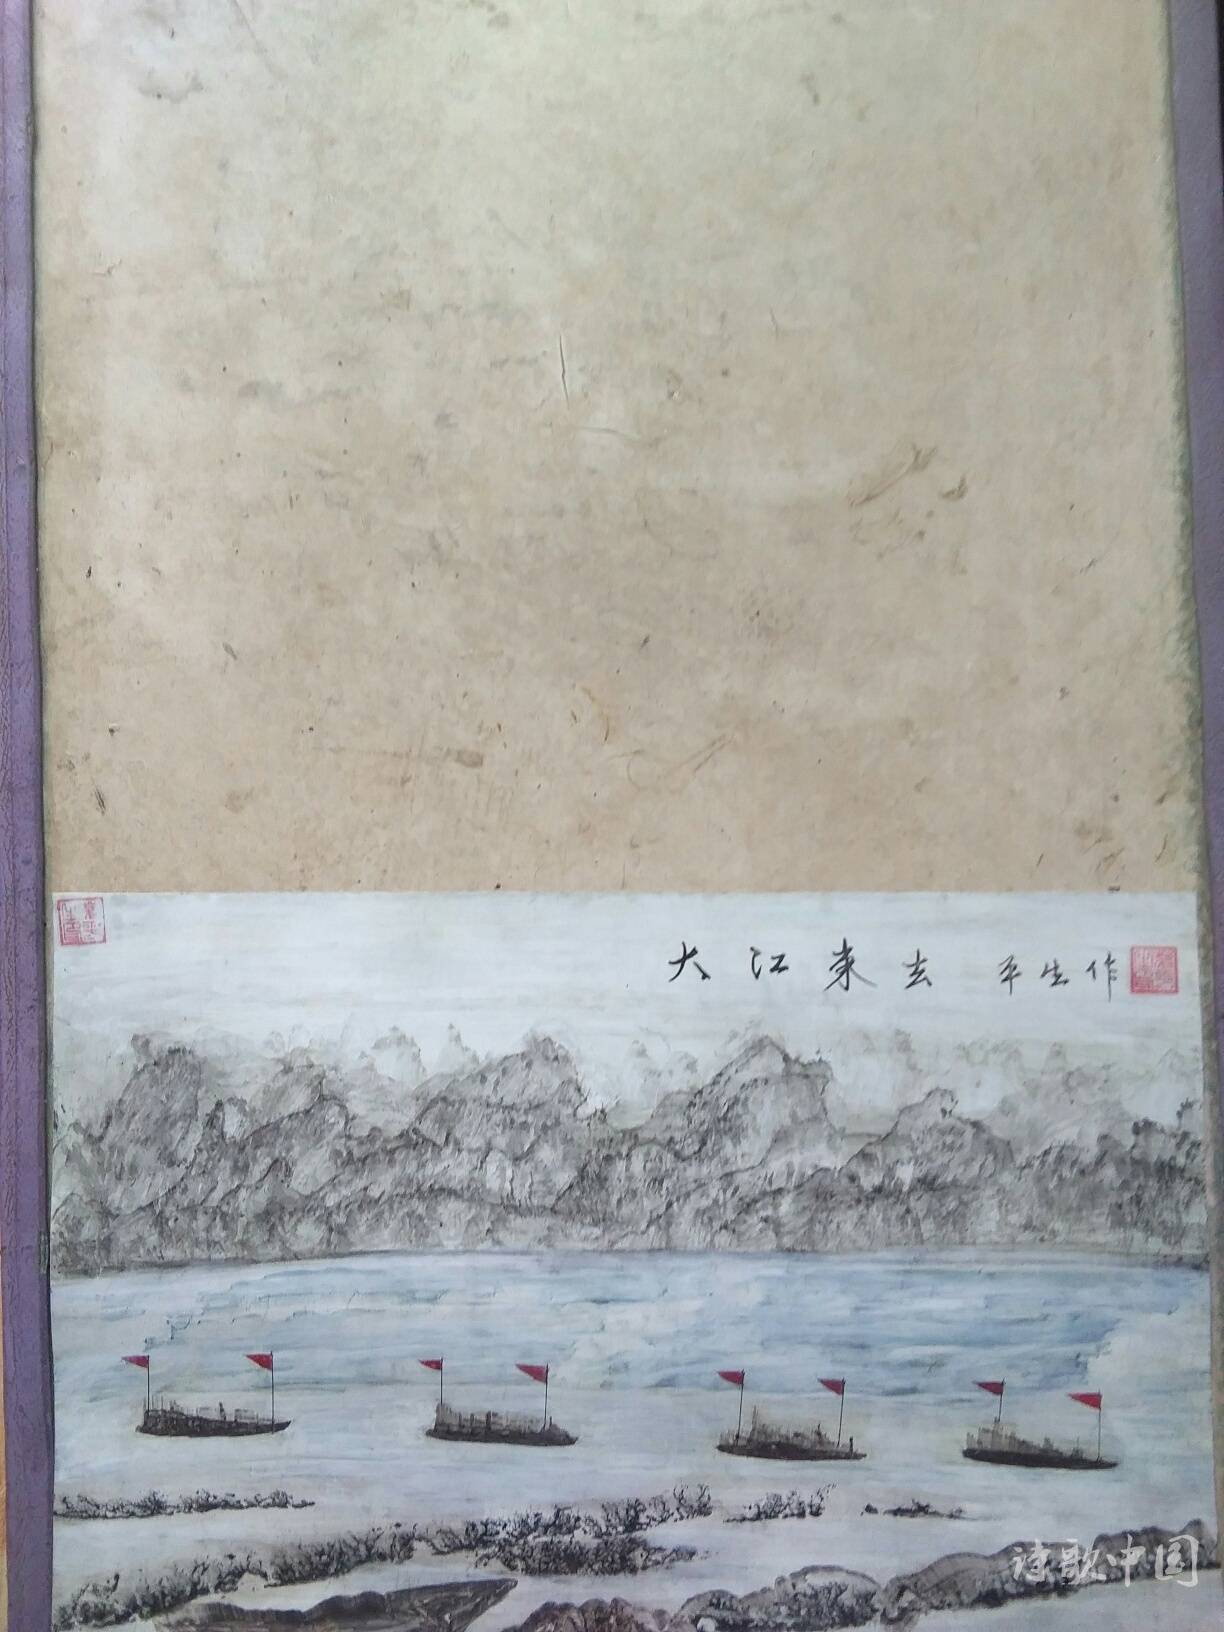 大江来去 平生作
诗歌中国